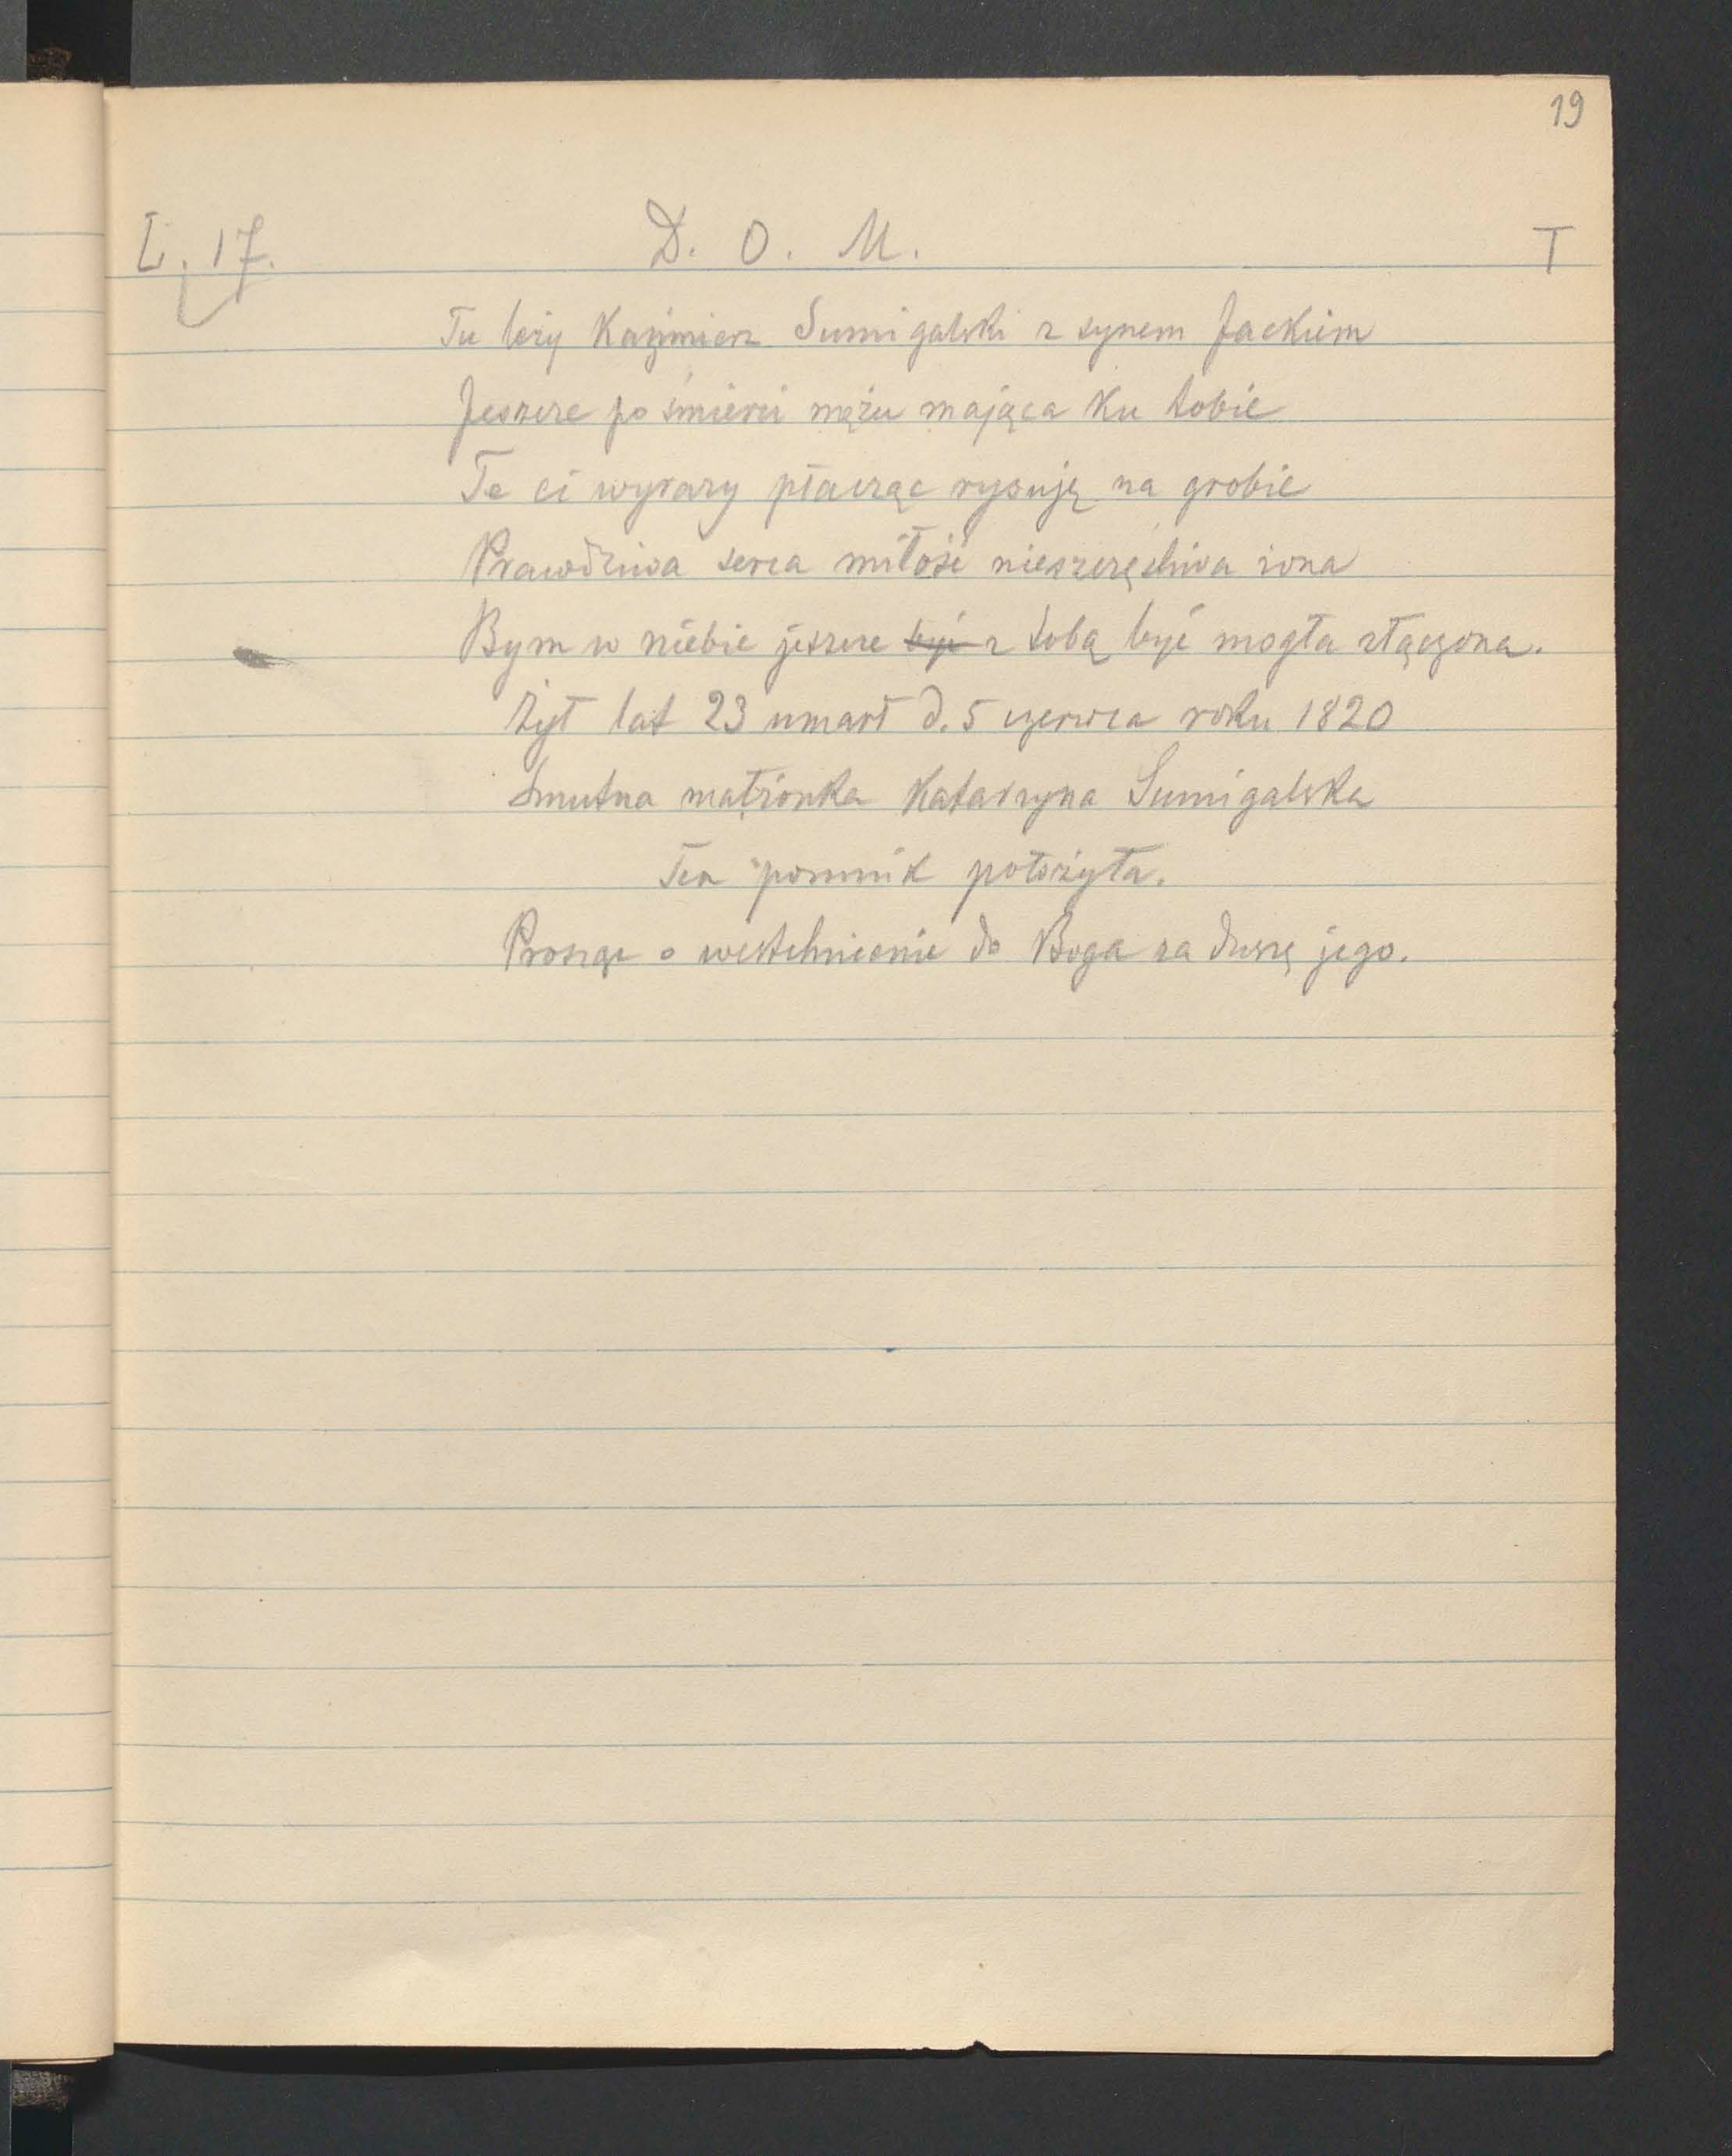 19
L. 17. D. O. M. T
Tu leży Kaźmierz Sumigalski z synem Jackiem
Jeszcze po śmierci mężu mająca ku tobie
Te ci wyrazy płacząc rysuję na grobie
Prawdziwa serca miłość nieszczęśliwa żona
Bym w niebie jeszcze być z tobą być mogła złączona.
Żył lat 23 umarł d. 5 czerwca roku 1820
Smutna małżonka Katarzyna Sumigalska
Ten pomnik położyła.
Prosząc o westchnienie do Boga za duszę jego.